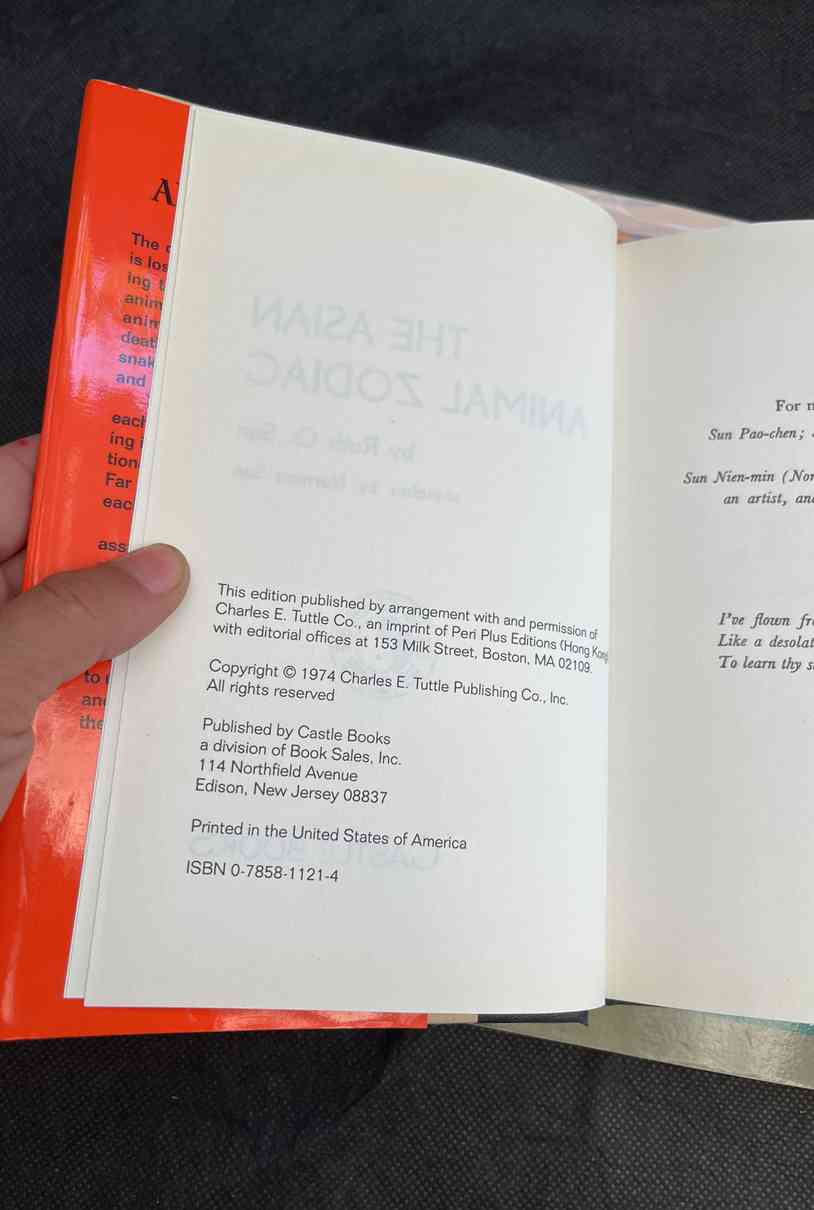 The
is los
ing
anim
anim
deat
snak
and
each
ing
tion
Far
eac
ass
to
and
the
THE ASIAN
ANIMAL ZODIAC
by Ruth Q. Sun
sketches by Norman Sun
This edition published by arrangement with and permission of
Charles E. Tuttle Co., an imprint of Peri Plus Editions (Hong Kong)
with editorial offices at 153 Milk Street, Boston, MA 02109.
Copyright © 1974 Charles E. Tuttle Publishing Co., Inc.
All rights reserved
Published by Castle Books
a division of Book Sales, Inc.
114 Northfield Avenue
Edison, New Jersey 08837
Printed in the United States of America
CASTLE BOOKS
ISBN 0-7858-1121-4
For
Sun Pao-chen;
Sun Nien-min (Nor
an artist, and
I've flown fr
Like a desolat
To learn thy s